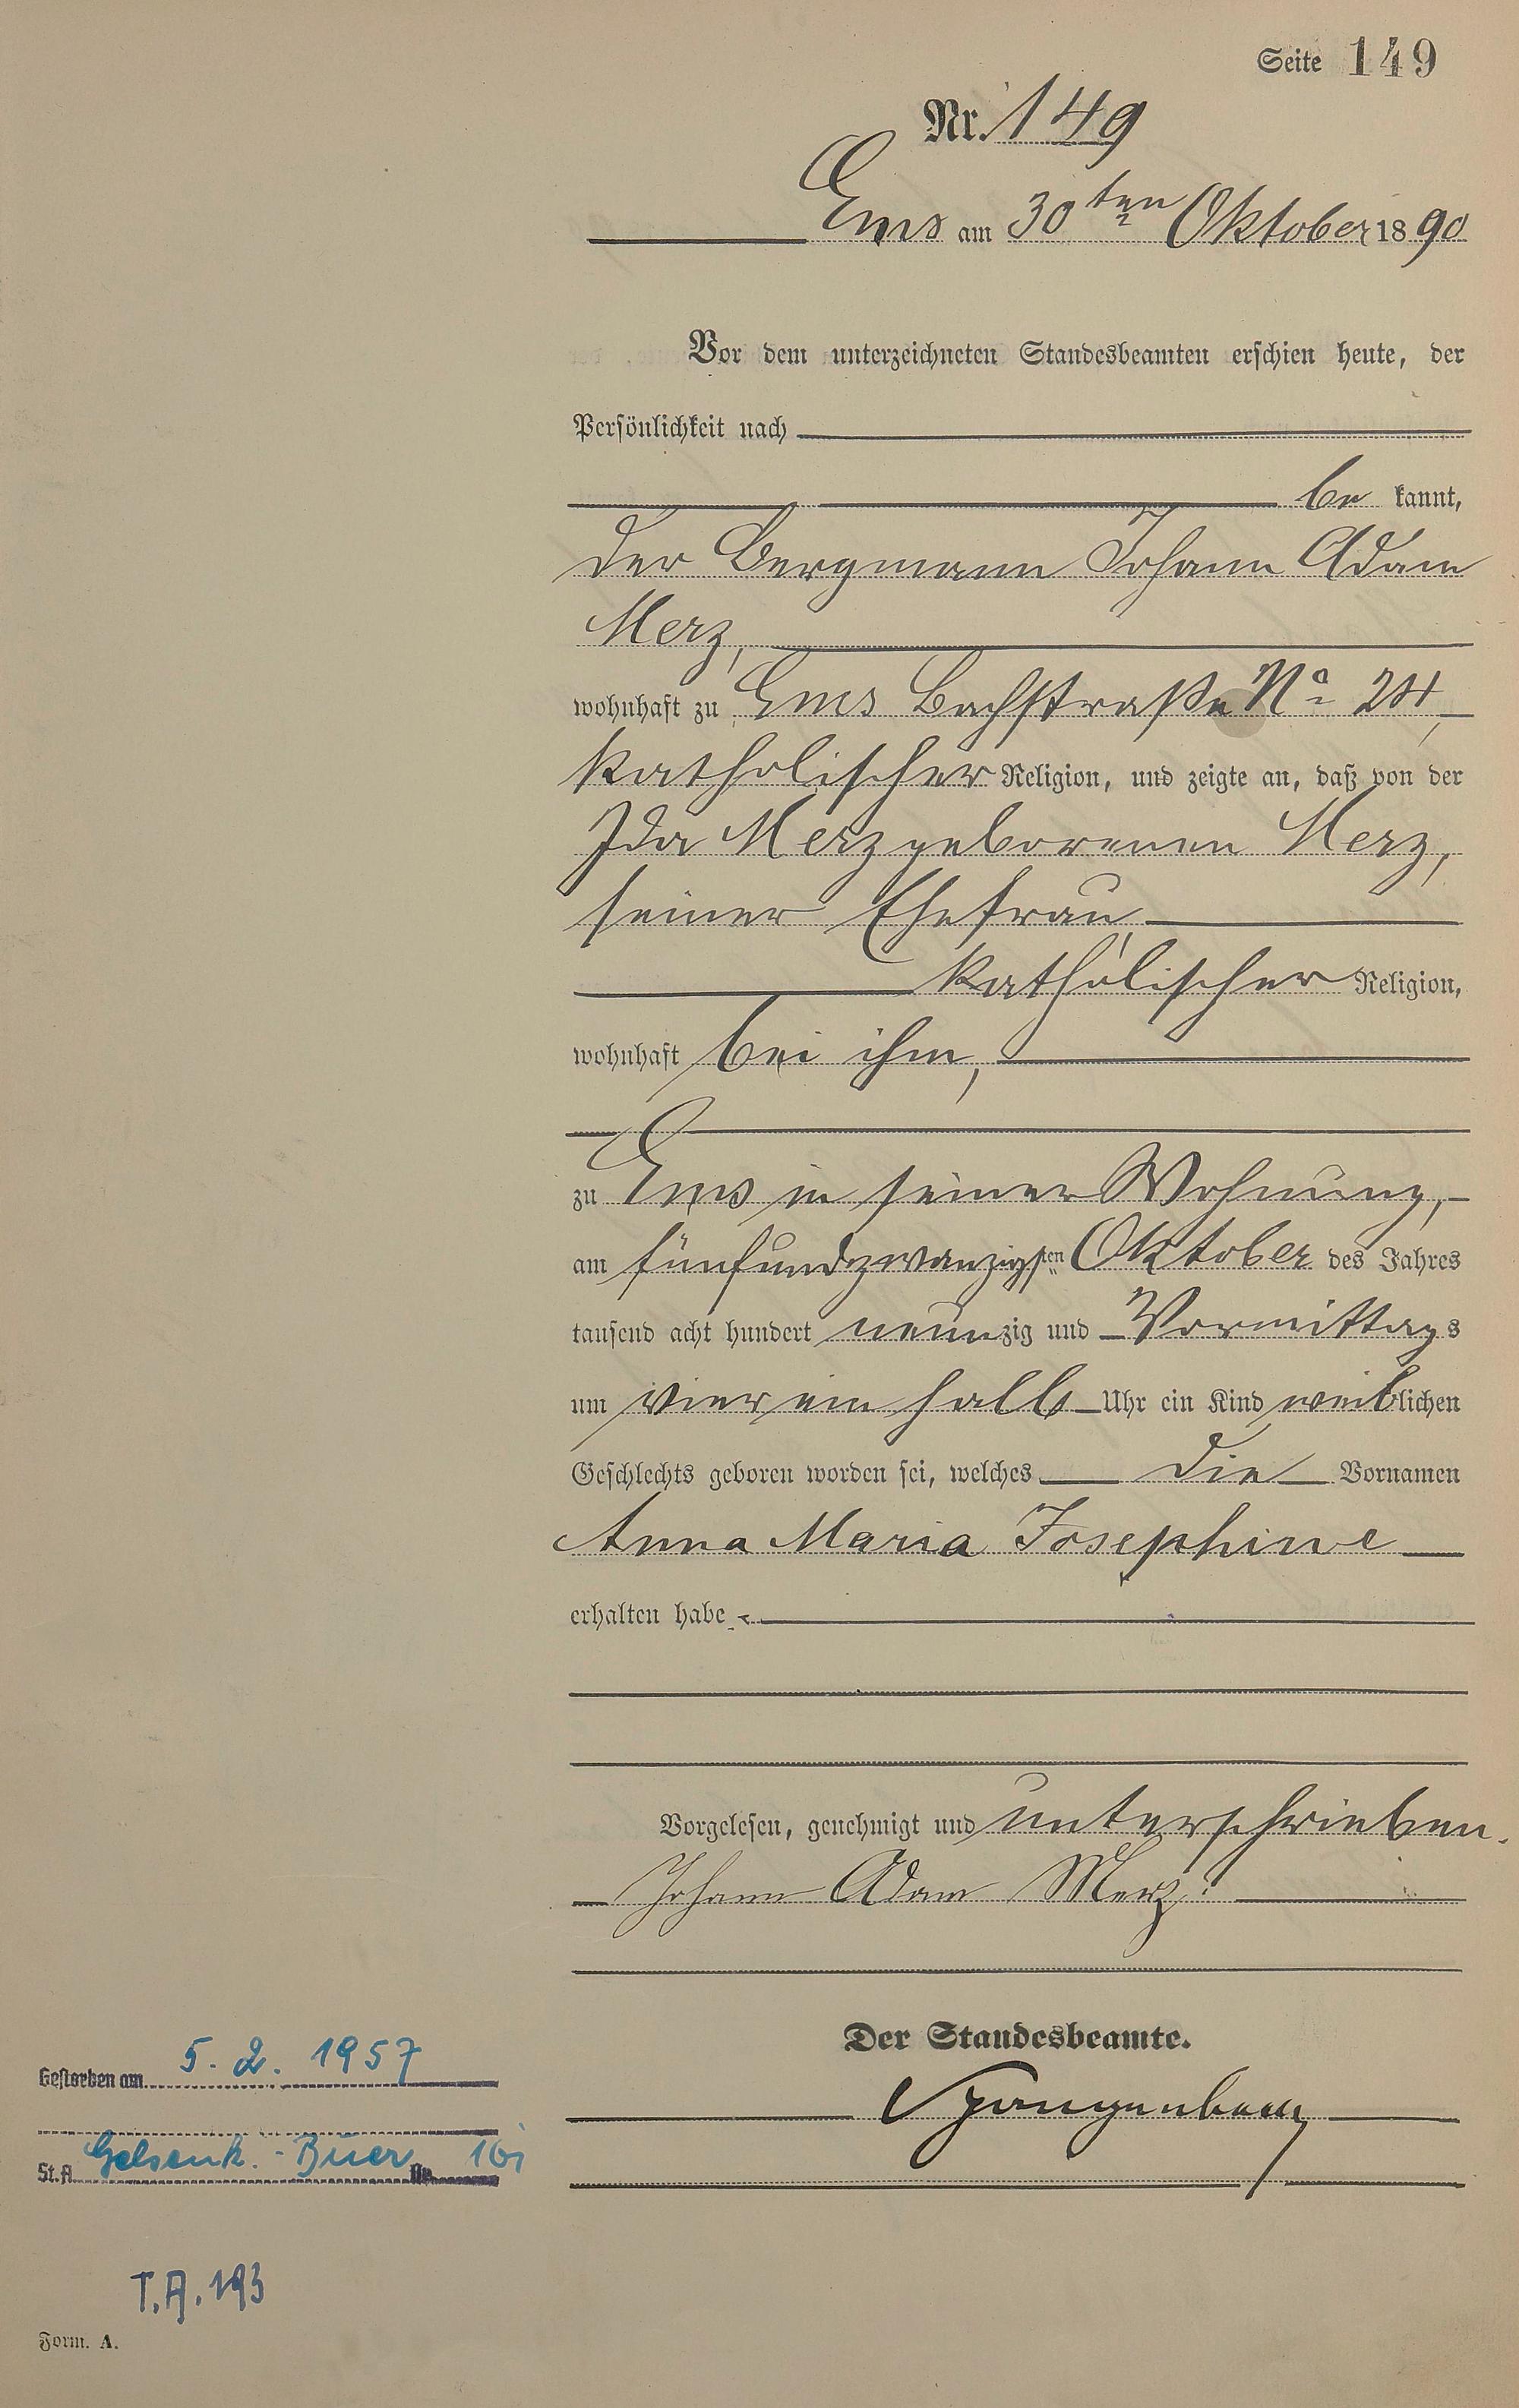 Seite 149
Nr. 149
Ems am 30ten Oktober 1890
Vor dem unterzeichneten Standesbeamten erschien heute, der
Persönlichkeit nach
be kannt,
der Bergmann Johann Adam
Merz,
wohnhaft zu Ems Bachstraße No 24,
katholischer Religion, und zeigte an, daß von der
Ida Merz geborenen Merz,
seiner Ehefrau,
katholischer Religion,
wohnhaft bei ihm,
zu Ems in seiner Wohnung,
am fünfundzwanzigsten Oktober des Jahres
tausend acht hundert neunzig und Vormittags
um vier ein halb Uhr ein Kind weiblichen
Geschlechts geboren worden sei, welches die Vornamen
Anna Maria Josephine
erhalten habe.
Vorgelesen, genehmigt und unterschrieben.
Johann Adam Merz.
Der Standesbeamte.
Gestorben am 5. 2. 1957
St.A. Gelsenk.-Buer Nr.
T.A. 193
Form. A.